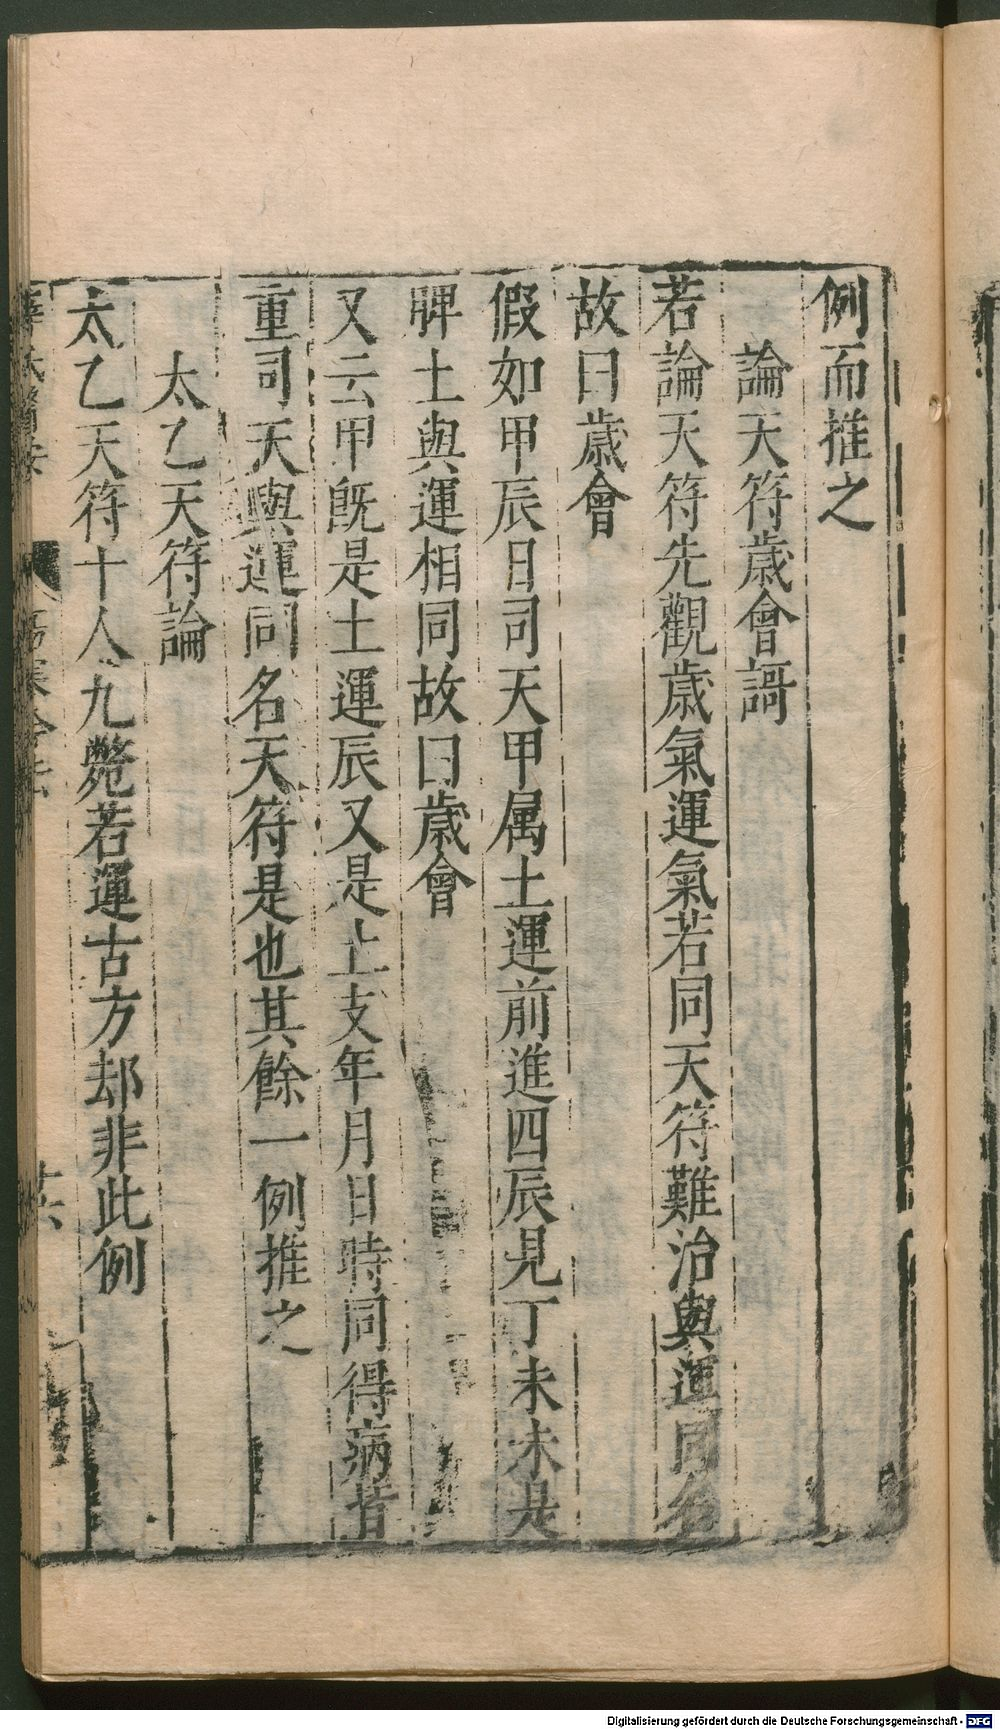 例而推之
論天符歲會謌
若論天符先觀歲氣運氣若同天符難治與運同名
故曰歲會
假如甲辰日司天甲属土運前進四辰見丁未未是
脾土與運相同故曰歲會
又云甲既是土運辰又是土支年月日時同得病者
重司天與運同名天符是也其餘一例推之
太乙天符論
太乙天符十人九斃若運古方却非此例
十六
Digitalisierung gefördert durch die Deutsche Forschungsgemeinschaft - DFG